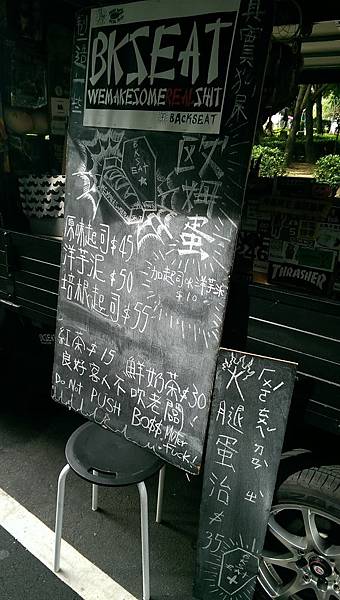 BKSEAT
WEMAKESOMEREALSHIT
BACKSEAT
製造一些
真實狗屎
歐姆蛋
BKSEAT
原味起司$45
洋芋泥$50
培根起司$55
加起司or洋芋泥
$10
紅茶$15 鮮奶茶$30
良好客人不吹老闆!
DO NOT PUSH BO$$, MOTHER
FUCK!
THRASHER
火腿蛋治$35